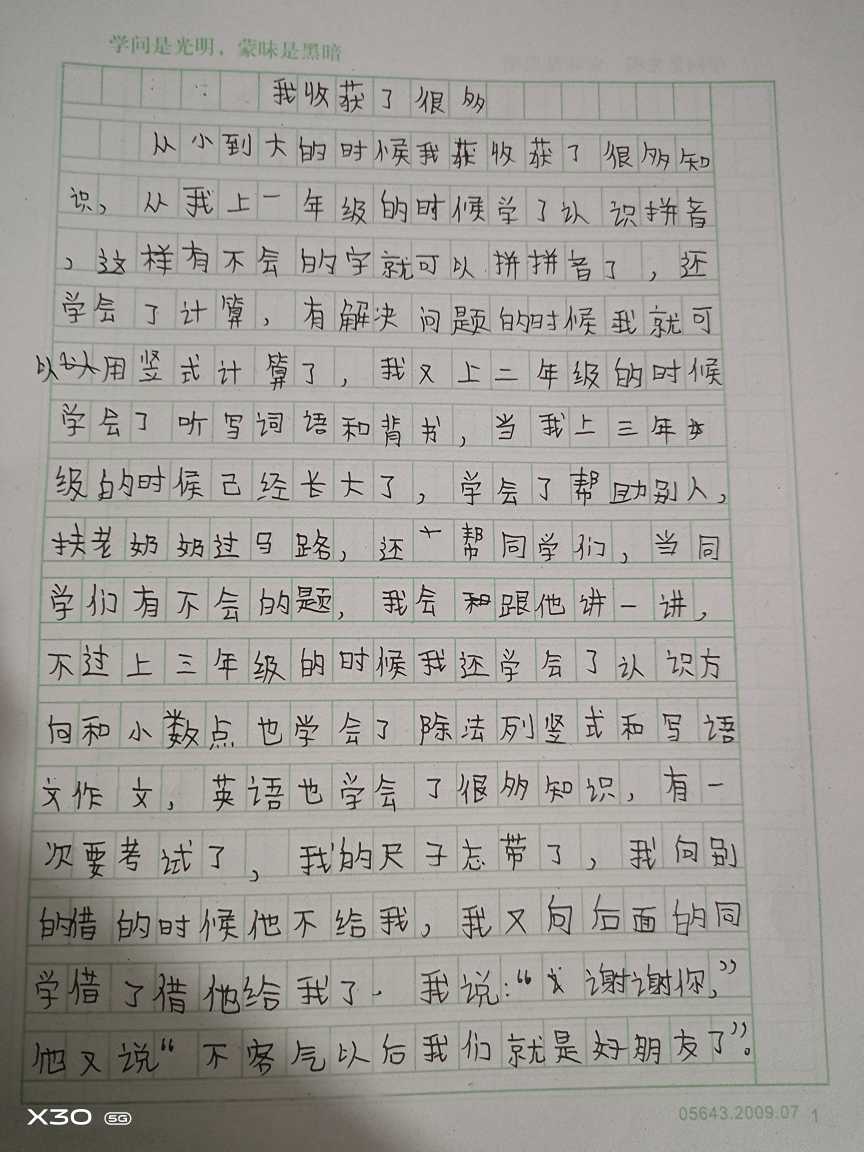 学问是光明，蒙昧是黑暗
我收获了很多
从小到大的时候我获收获了很多知
识，从我上一年级的时候学了认识拼音
，这样有不会的字就可以拼拼音了，还
学会了计算，有解决问题的时候我就可
以以用竖式计算了，我又上二年级的时候
学会了听写词语和背书，当我上三年
级的时候已经长大了，学会了帮助别人，
扶老奶奶过马路，还帮同学们，当同
学们有不会的题，我会和跟他讲一讲，
不过上三年级的时候我还学会了认识方
向和小数点也学会了除法列竖式和写语
文作文，英语也学会了很多知识，有一
次要考试了，我的尺子忘带了，我向别
的借的时候他不给我，我又向后面的同
学借了借他给我了.我说：“谢谢你，”
他又说“不客气以后我们就是好朋友了”。
X30 5G
05643.2009.07 1